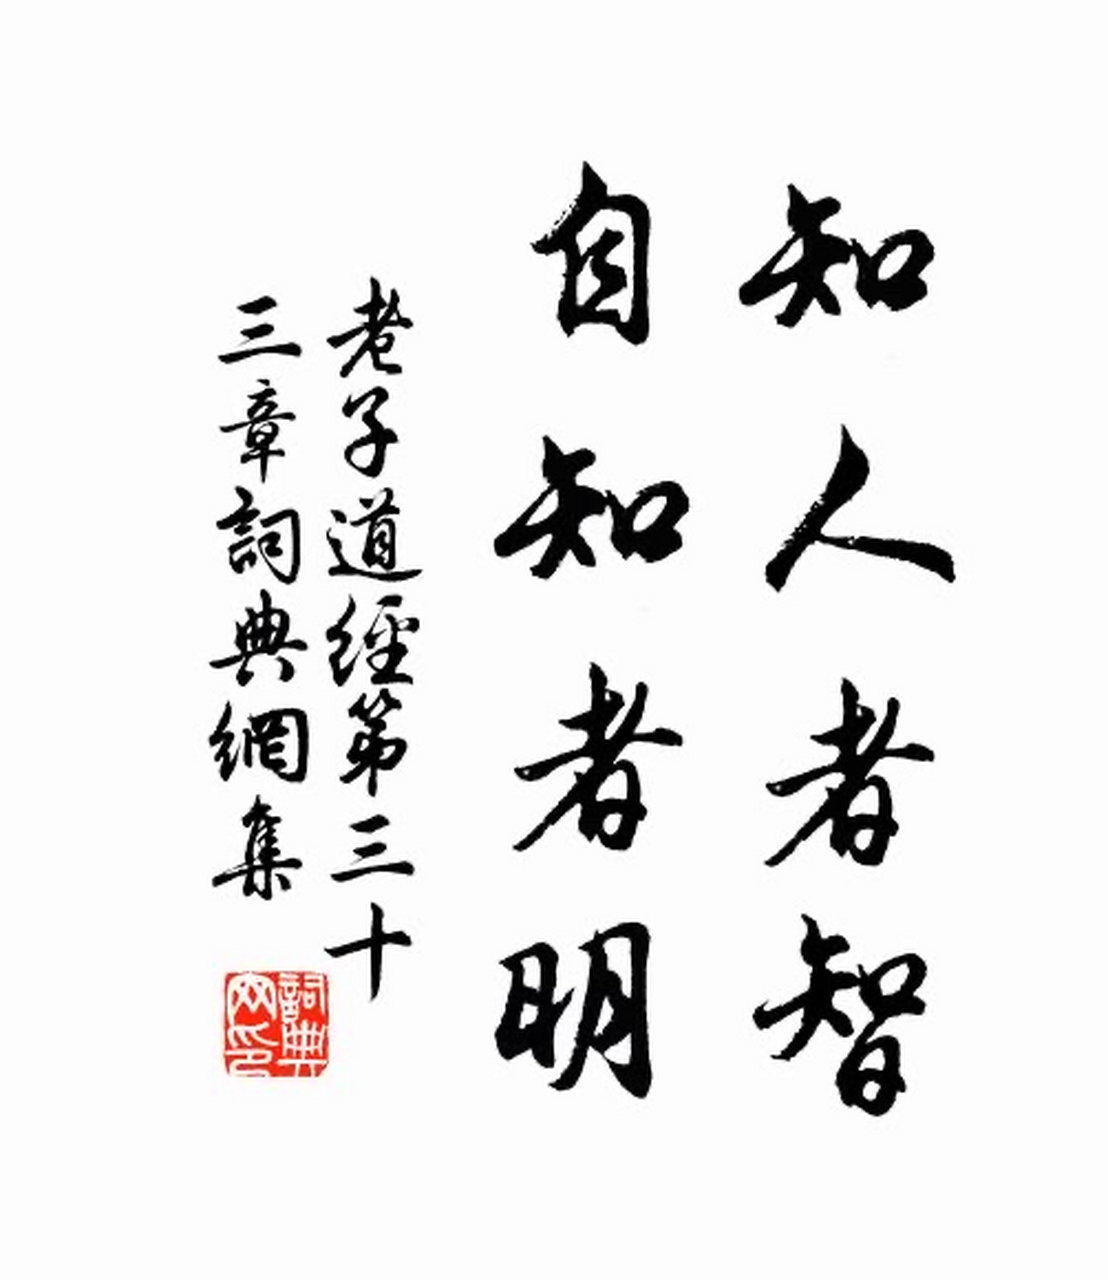 知人者智
自知者明
老子道經第三十
三章詞典網集
詞典
网印